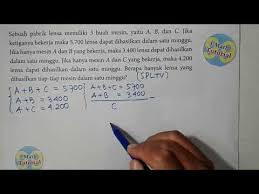 Sebuah pabrik lensa memiliki 3 buah mesin, yaitu A, B, dan C. Jika
ketiganya bekerja maka 5.700 lensa dapat dihasilkan dalam satu minggu.
Jika hanya mesin A dan B yang bekerja, maka 3.400 lensa dapat dihasilkan
dalam satu minggu. Jika hanya mesin A dan C yang bekerja, maka 4.200
lensa dapat dihasilkan dalam satu minggu. Berapa banyak lensa yang
dihasilkan tiap-tiap mesin dalam satu minggu? (SPLTV)
A + B + C = 5700
A + B = 3400
A + C = 4.200
A + B + C = 5700
A + B = 3400
C
Math
Tutorial
Math
Tutorial